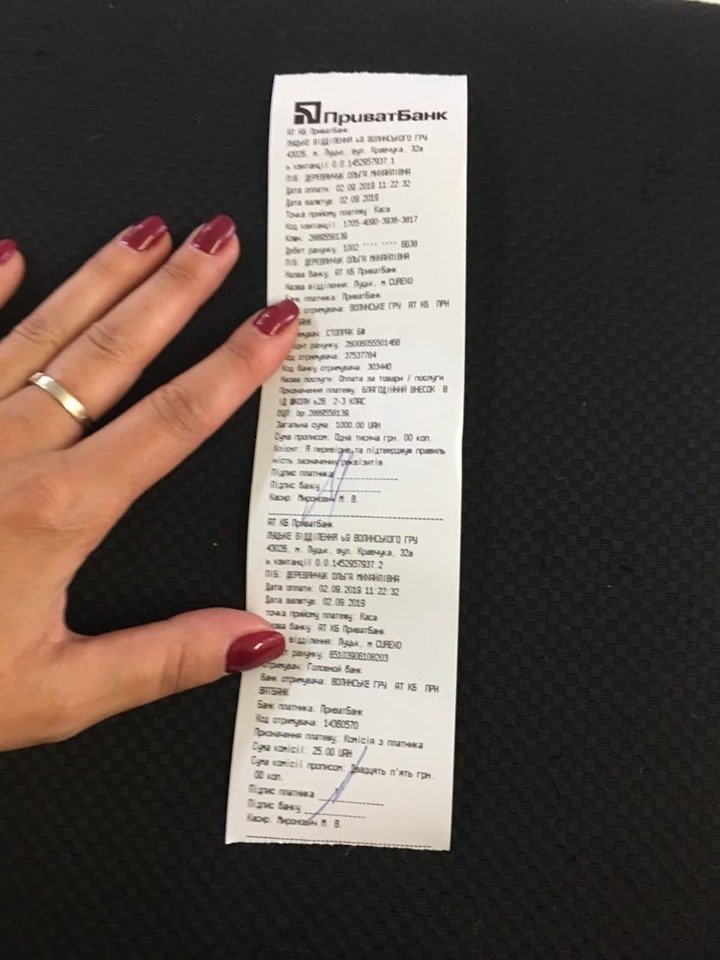 ПриватБанк
АТ КБ ПриватБанк
ЛУЦЬКЕ ВІДДІЛЕННЯ ь9 ВОЛИНСЬКОГО ГРУ
43026, м. Луцьк, вул. Кравчука, 32а
ь квитанції 0.0.1452957937.1
ПІБ: ДЕРЕВЯНЧУК ОЛЬГА МИХАЙЛІВНА
Дата оплати: 02.09.2019 11:22:32
Дата валютув: 02.09.2019
Точка прийому платежу: Каса
Код квитанції: 1705-4090-3938-3817
Ключ: 2888558139
Дебет рахунку: 1002 **** **** 6638
ПІБ: ДЕРЕВЯНЧУК ОЛЬГА МИХАЙЛІВНА
Назва банку: АТ КБ ПриватБанк
Назва відділення: Луцьк, м CUREXO
Банк платника: ПриватБанк
отримувача: ВОЛИНСЬКЕ ГРУ АТ КБ ПРИ
СТОПРАК БФ
рахунку: 26006055501468
отримувача: 37537784
Код банку отримувача: 303440
Назва послуги: Оплата за товари / послуги
Призначення платежу: БЛАГОДІЙНИЙ ВНЕСОК В
ІД ШКОЛИ ь26 2-3 КЛАС
Загальна сума: 1000.00 UAH
Сума прописом: Одна тисяча грн. 00 коп.
Клієнт: Я перевірив та підтверджую правиль
ність зазначених реквізитів.
Підпис платника
Підпис банку
Касир: Миронович М. В.
АТ КБ ПриватБанк
ЛУЦЬКЕ ВІДДІЛЕННЯ ь9 ВОЛИНСЬКОГО ГРУ
43026, м. Луцьк, вул. Кравчука, 32а
ь квитанції 0.0.1452957937.2
ПІБ: ДЕРЕВЯНЧУК ОЛЬГА МИХАЙЛІВНА
Дата оплати: 02.09.2019 11:22:32
Дата валютув: 02.09.2019
точка прийому платежу: Каса
банку: АТ КБ ПриватБанк
відділення: Луцьк, м CUREXO
рахунку: 65103906108203
отримувач: Головной банк
Банк отримувача: ВОЛИНСЬКЕ ГРУ АТ КБ ПРИ
ВАТБАНК
Банк платника: ПриватБанк
Код отримувача: 14360570
Призначення платежу: Комісія з платника
Сума комісії: 25.00 UAH
Сума комісії прописом: Двадцять п'ять грн.
00 коп.
Підпис платника
Підпис банку
Касир: Миронович М. В.